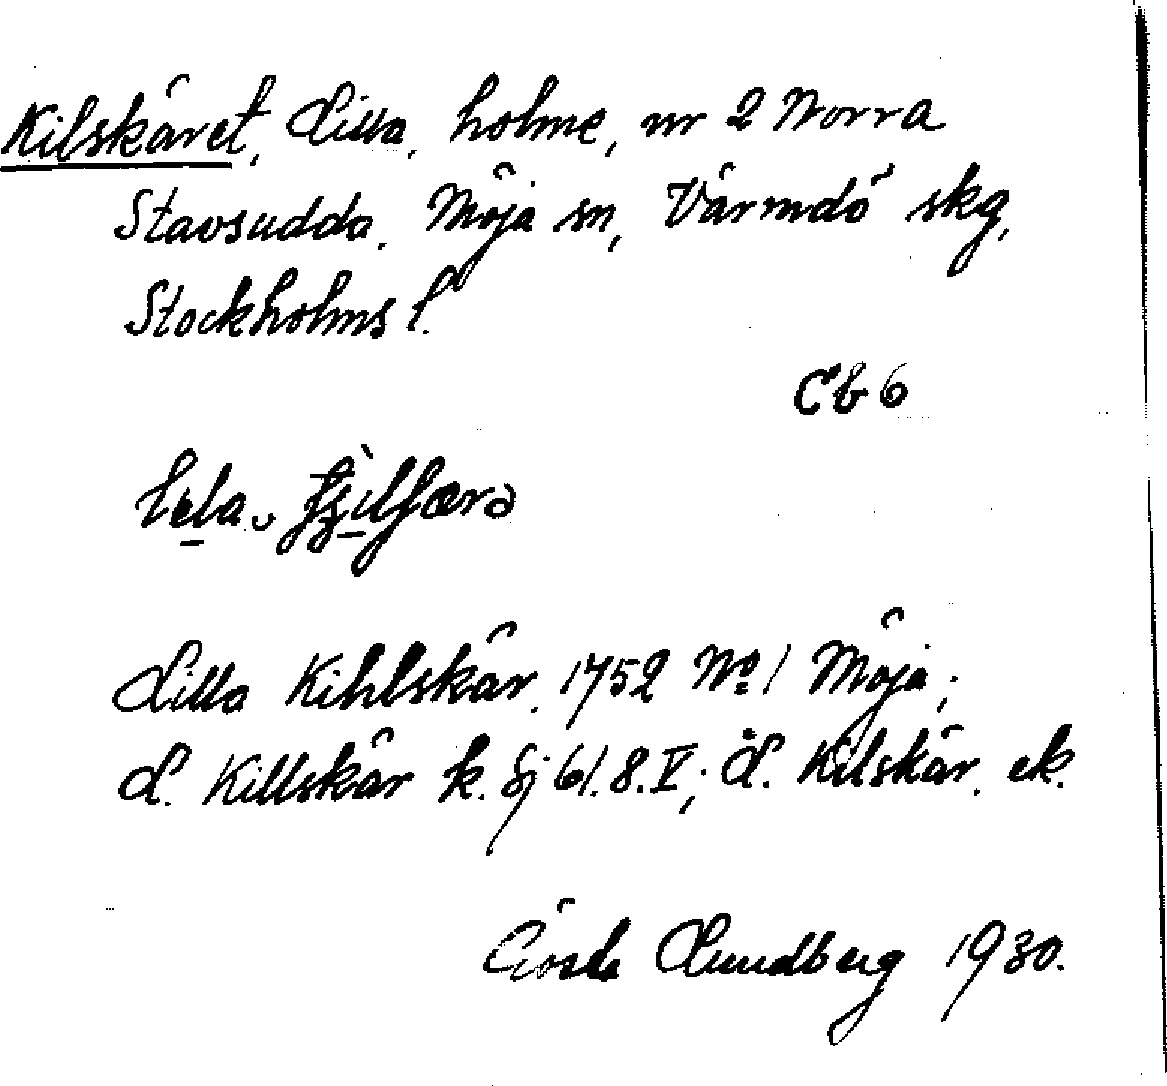 Kilskäret, Lilla, holme, nr 2 Norra
Stavsudda, Möja sn, Värmdö skg,
Stockholms l.
Cb 6
Lilla Kihlskär, 1752 No. 1 Möja;
L. Killskär k. Sj 61.8.V; L. Kilskär, ek.
Gösta Lundberg 1930.